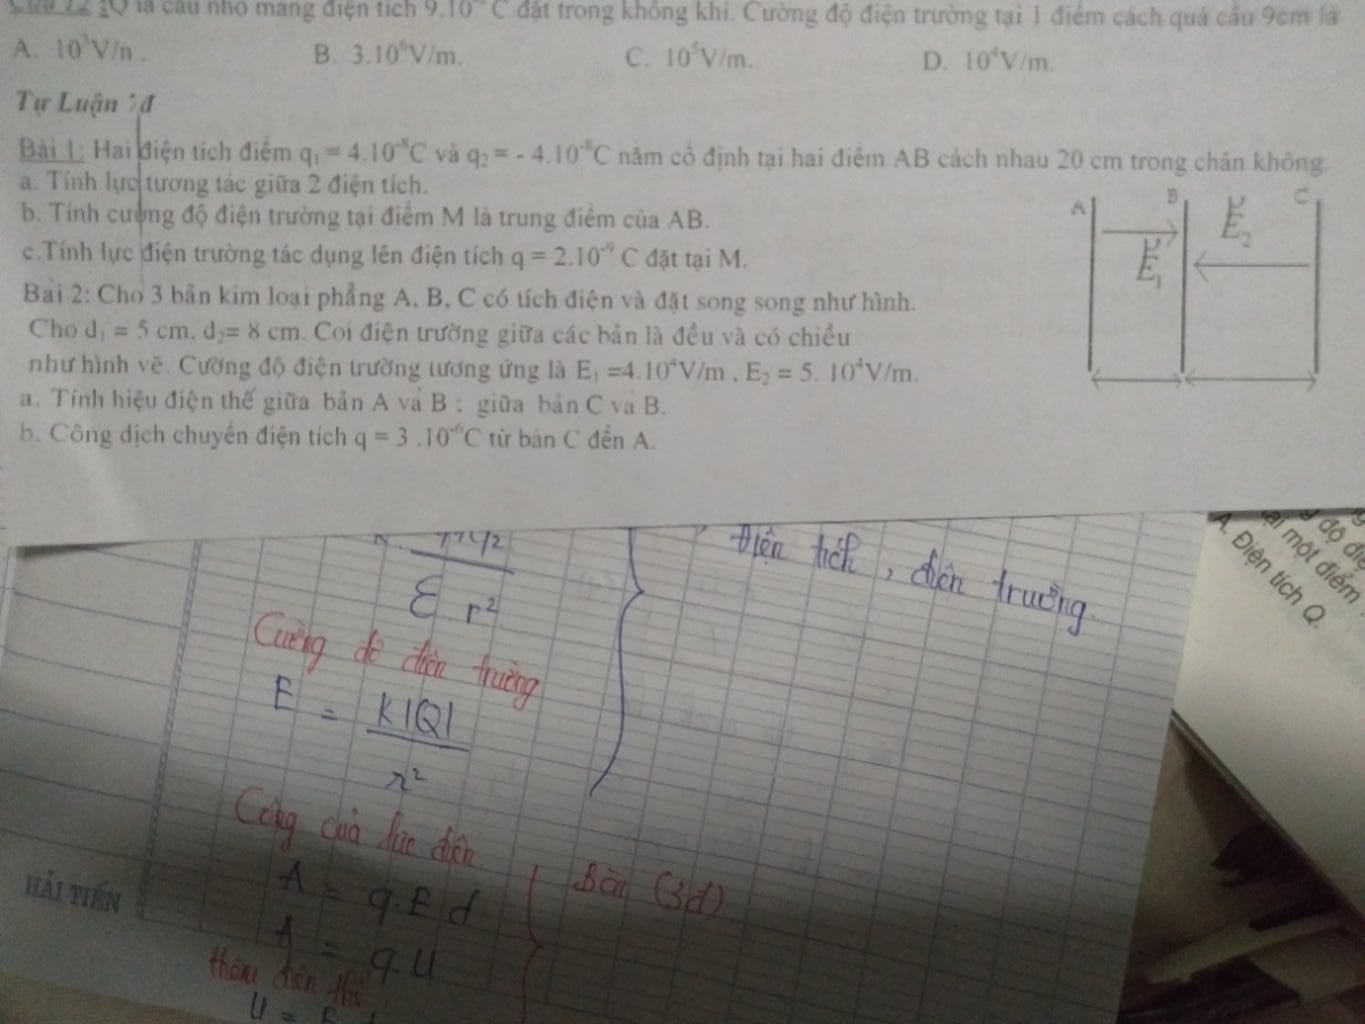 là cầu nhỏ mang điện tích 9.10 C đặt trong không khí. Cường độ điện trường tại 1 điểm cách quả cầu 9cm là
A. 10³V/n . B. 3.10⁶V/m. C. 10⁵V/m. D. 10⁴V/m.
Tự Luận : đ
Bài 1: Hai điện tích điểm q₁ = 4.10⁻⁸C và q₂ = - 4.10⁻⁸C nằm cố định tại hai điểm AB cách nhau 20 cm trong chân không.
a. Tính lực tương tác giữa 2 điện tích.
b. Tính cường độ điện trường tại điểm M là trung điểm của AB.
c.Tính lực điện trường tác dụng lên điện tích q = 2.10⁻⁹ C đặt tại M.
Bài 2: Cho 3 bản kim loại phẳng A, B, C có tích điện và đặt song song như hình.
Cho d₁ = 5 cm, d₂= 8 cm. Coi điện trường giữa các bản là đều và có chiều
như hình vẽ. Cường độ điện trường tương ứng là E₁ =4.10⁴V/m , E₂ = 5. 10⁴V/m.
a. Tính hiệu điện thế giữa bản A và B ; giữa bản C và B.
b. Công dịch chuyển điện tích q = 3 .10⁻⁶C từ bản C đến A.
A B C
E₁
E₂
ε r²
Điện tích, điện trường.
Cường độ điện trường
E = K|Q|
r²
Công của lực điện
A = q.E d
A = q.U
Bài (3đ)
điện thế
U = E
HẢI TIẾN
độ điệ
ại một điểm
A. Điện tích Q.